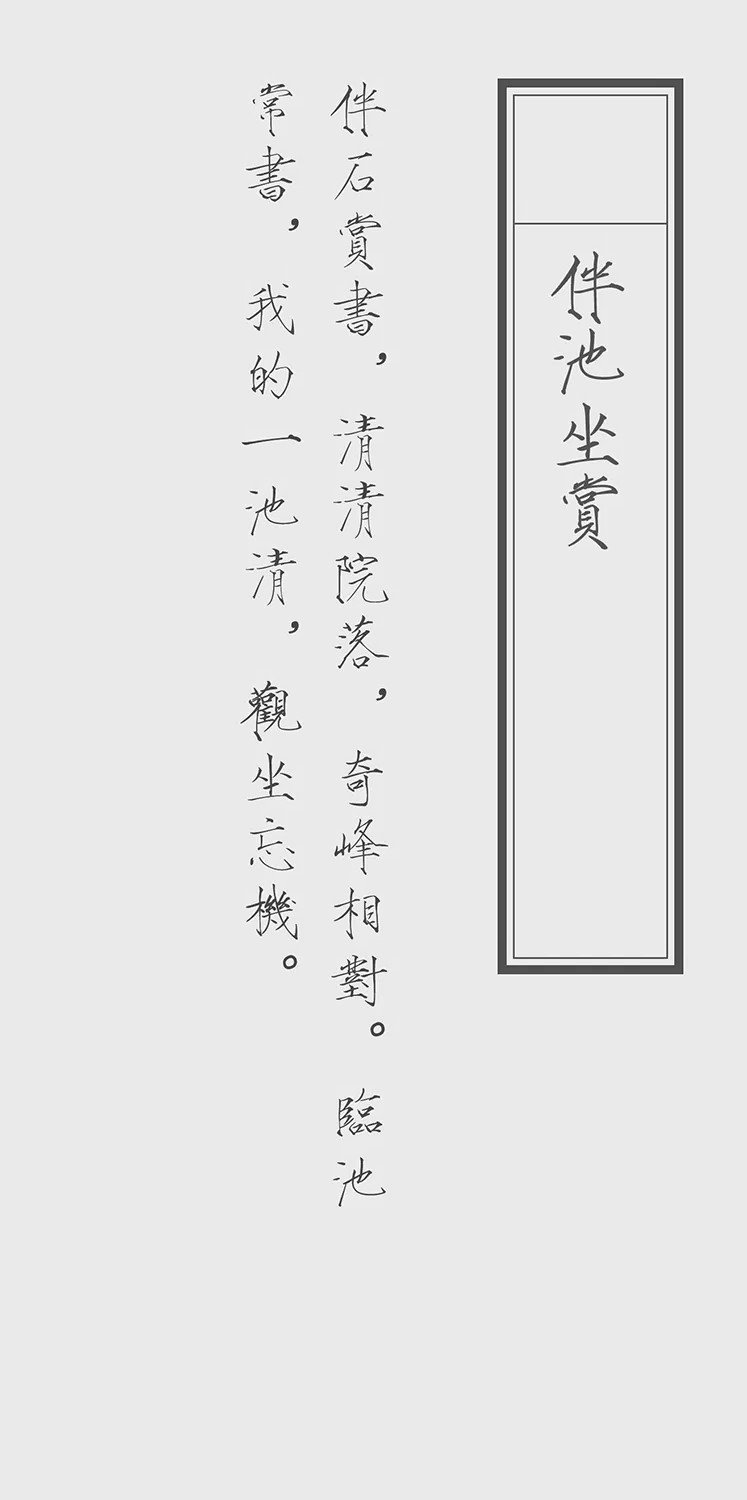 伴池坐賞
伴石賞書，清清院落，奇峰相對。臨池
常書，我的一池清，觀坐忘機。